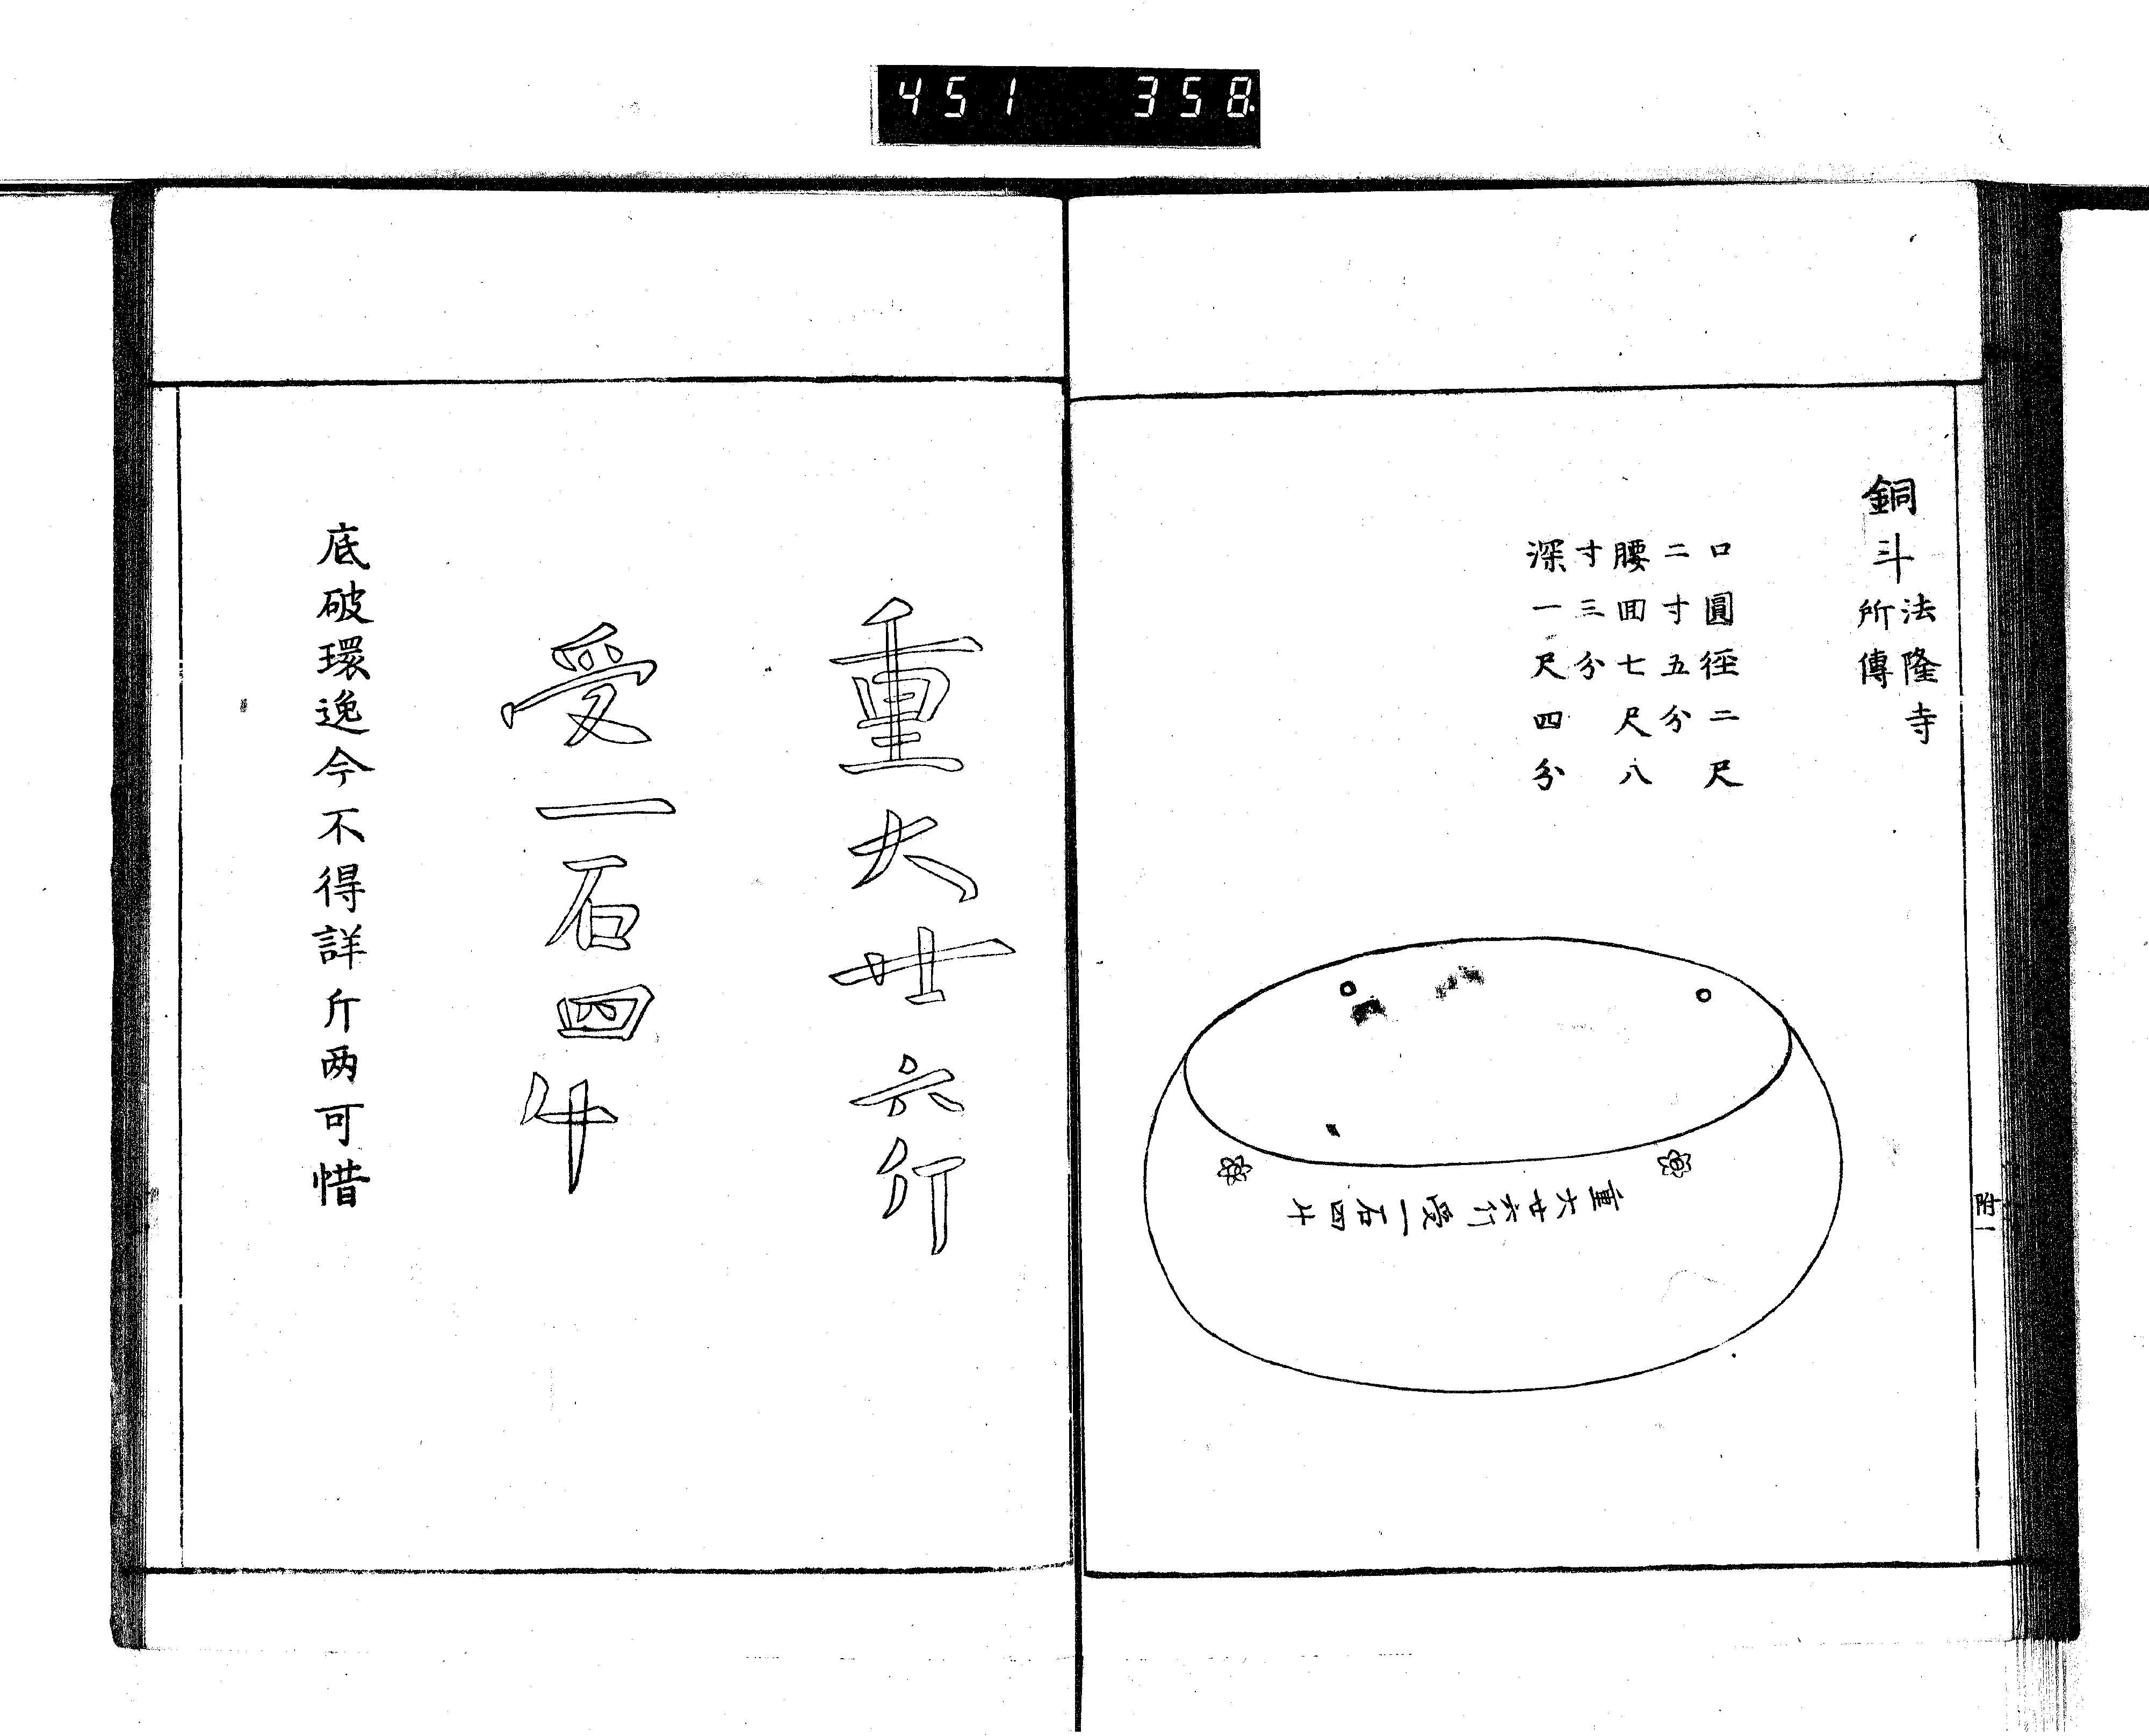 451 358.
銅斗
法隆寺
所傳
口圓徑二尺
二寸五分
腰囬七尺八
寸三分
深一尺四分
重大廿六斤受一石四升
重大廿六斤
受一石四升
底破環逸今不得詳斤两可惜